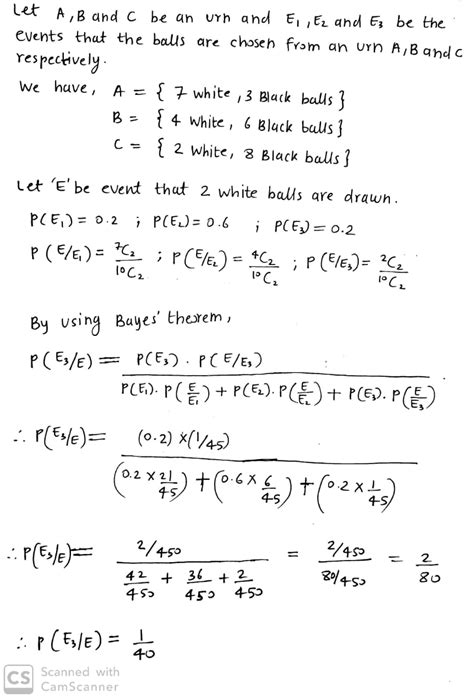 Let A, B and C be an urn and E₁, E₂ and E₃ be the
events that the balls are chosen from an urn A, B and C
respectively.
We have, A = { 7 white, 3 Black balls }
B = { 4 white, 6 Black balls }
C = { 2 White, 8 Black balls }
Let 'E' be event that 2 white balls are drawn.
P(E₁) = 0.2 ; P(E₂) = 0.6 ; P(E₃) = 0.2
P(E/E₁) = ⁷C₂/¹⁰C₂ ; P(E/E₂) = ⁴C₂/¹⁰C₂ ; P(E/E₃) = ²C₂/¹⁰C₂
By using Bayes' theorem,
P(E₃/E) = P(E₃) . P(E/E₃)
P(E₁). P(E/E₁) + P(E₂). P(E/E₂) + P(E₃). P(E/E₃)
∴ P(E₃/E) = (0.2) × (1/45)
(0.2 × 21/45) + (0.6 × 6/45) + (0.2 × 1/45)
∴ P(E₃/E) = 2/450 = 2/450 = 2/80
42/450 + 36/450 + 2/450 80/450
∴ P(E₃/E) = 1/40
CS Scanned with
CamScanner